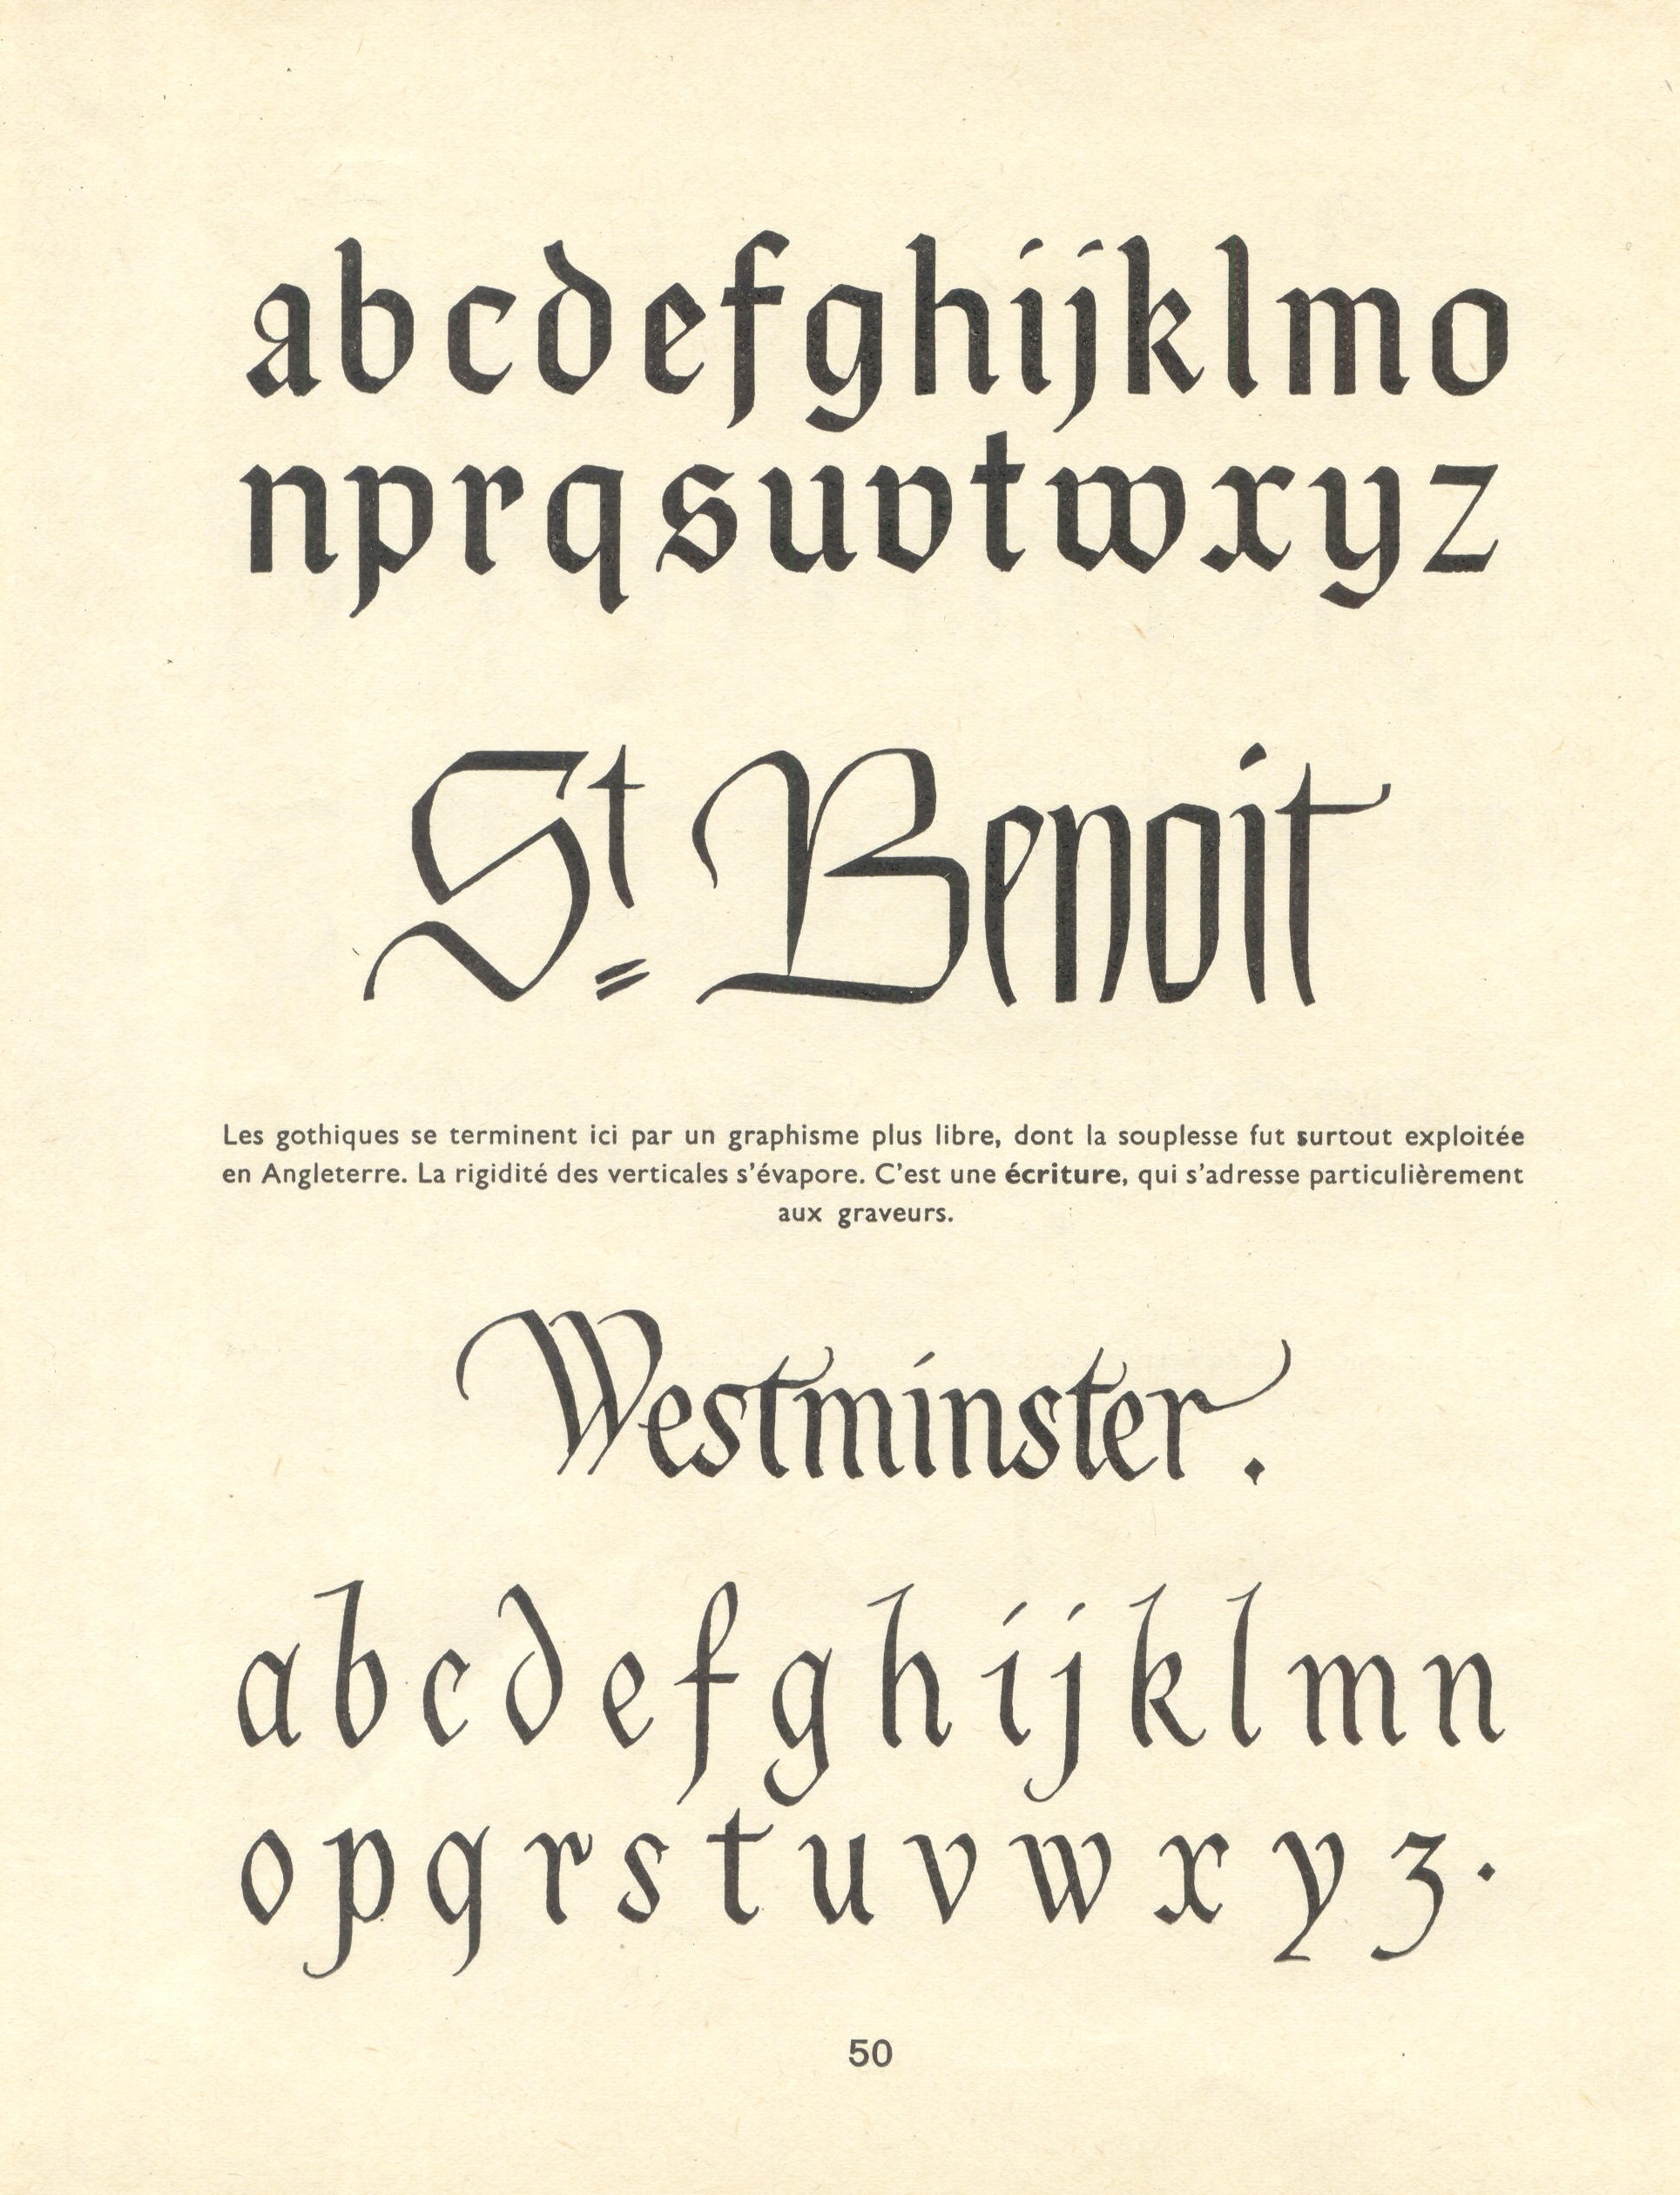 abcdefghijklmo
nprqsuvtwxyz
St Benoit
Les gothiques se terminent ici par un graphisme plus libre, dont la souplesse fut surtout exploitée
en Angleterre. La rigidité des verticales s'évapore. C'est une écriture, qui s'adresse particulièrement
aux graveurs.
Westminster.
abcdefghijklmn
opqrstuvwxyz.
50